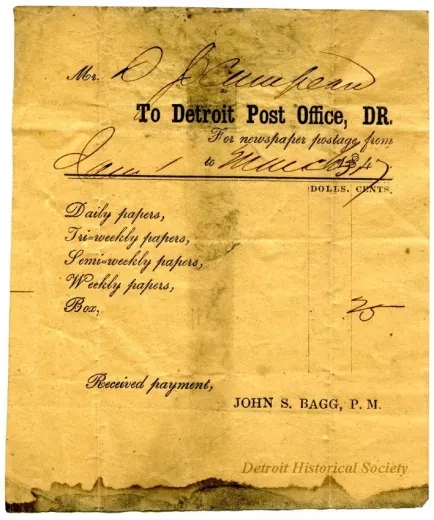 Mr. D J Campeau
To Detroit Post Office, DR.
For newspaper postage from
Jan 1 to March 31
DOLLS. CENTS.
Daily papers,
Tri-weekly papers,
Semi-weekly papers,
Weekly papers,
Box, 25
Received payment,
JOHN S. BAGG, P. M.
Detroit Historical Society